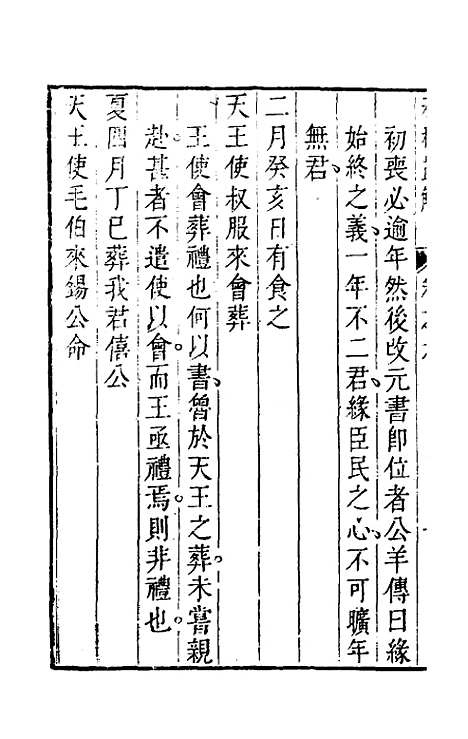 初喪必逾年然後改元書即位者公羊傳曰緣
始終之義一年不二君緣臣民之心不可曠年
無君
二月癸亥日有食之
天王使叔服來會葬
王使會葬禮也何以書魯於天王之葬未嘗親
赴甚者不遣使以會而王亟禮焉則非禮也
夏四月丁巳葬我君僖公
天王使毛伯來錫公命